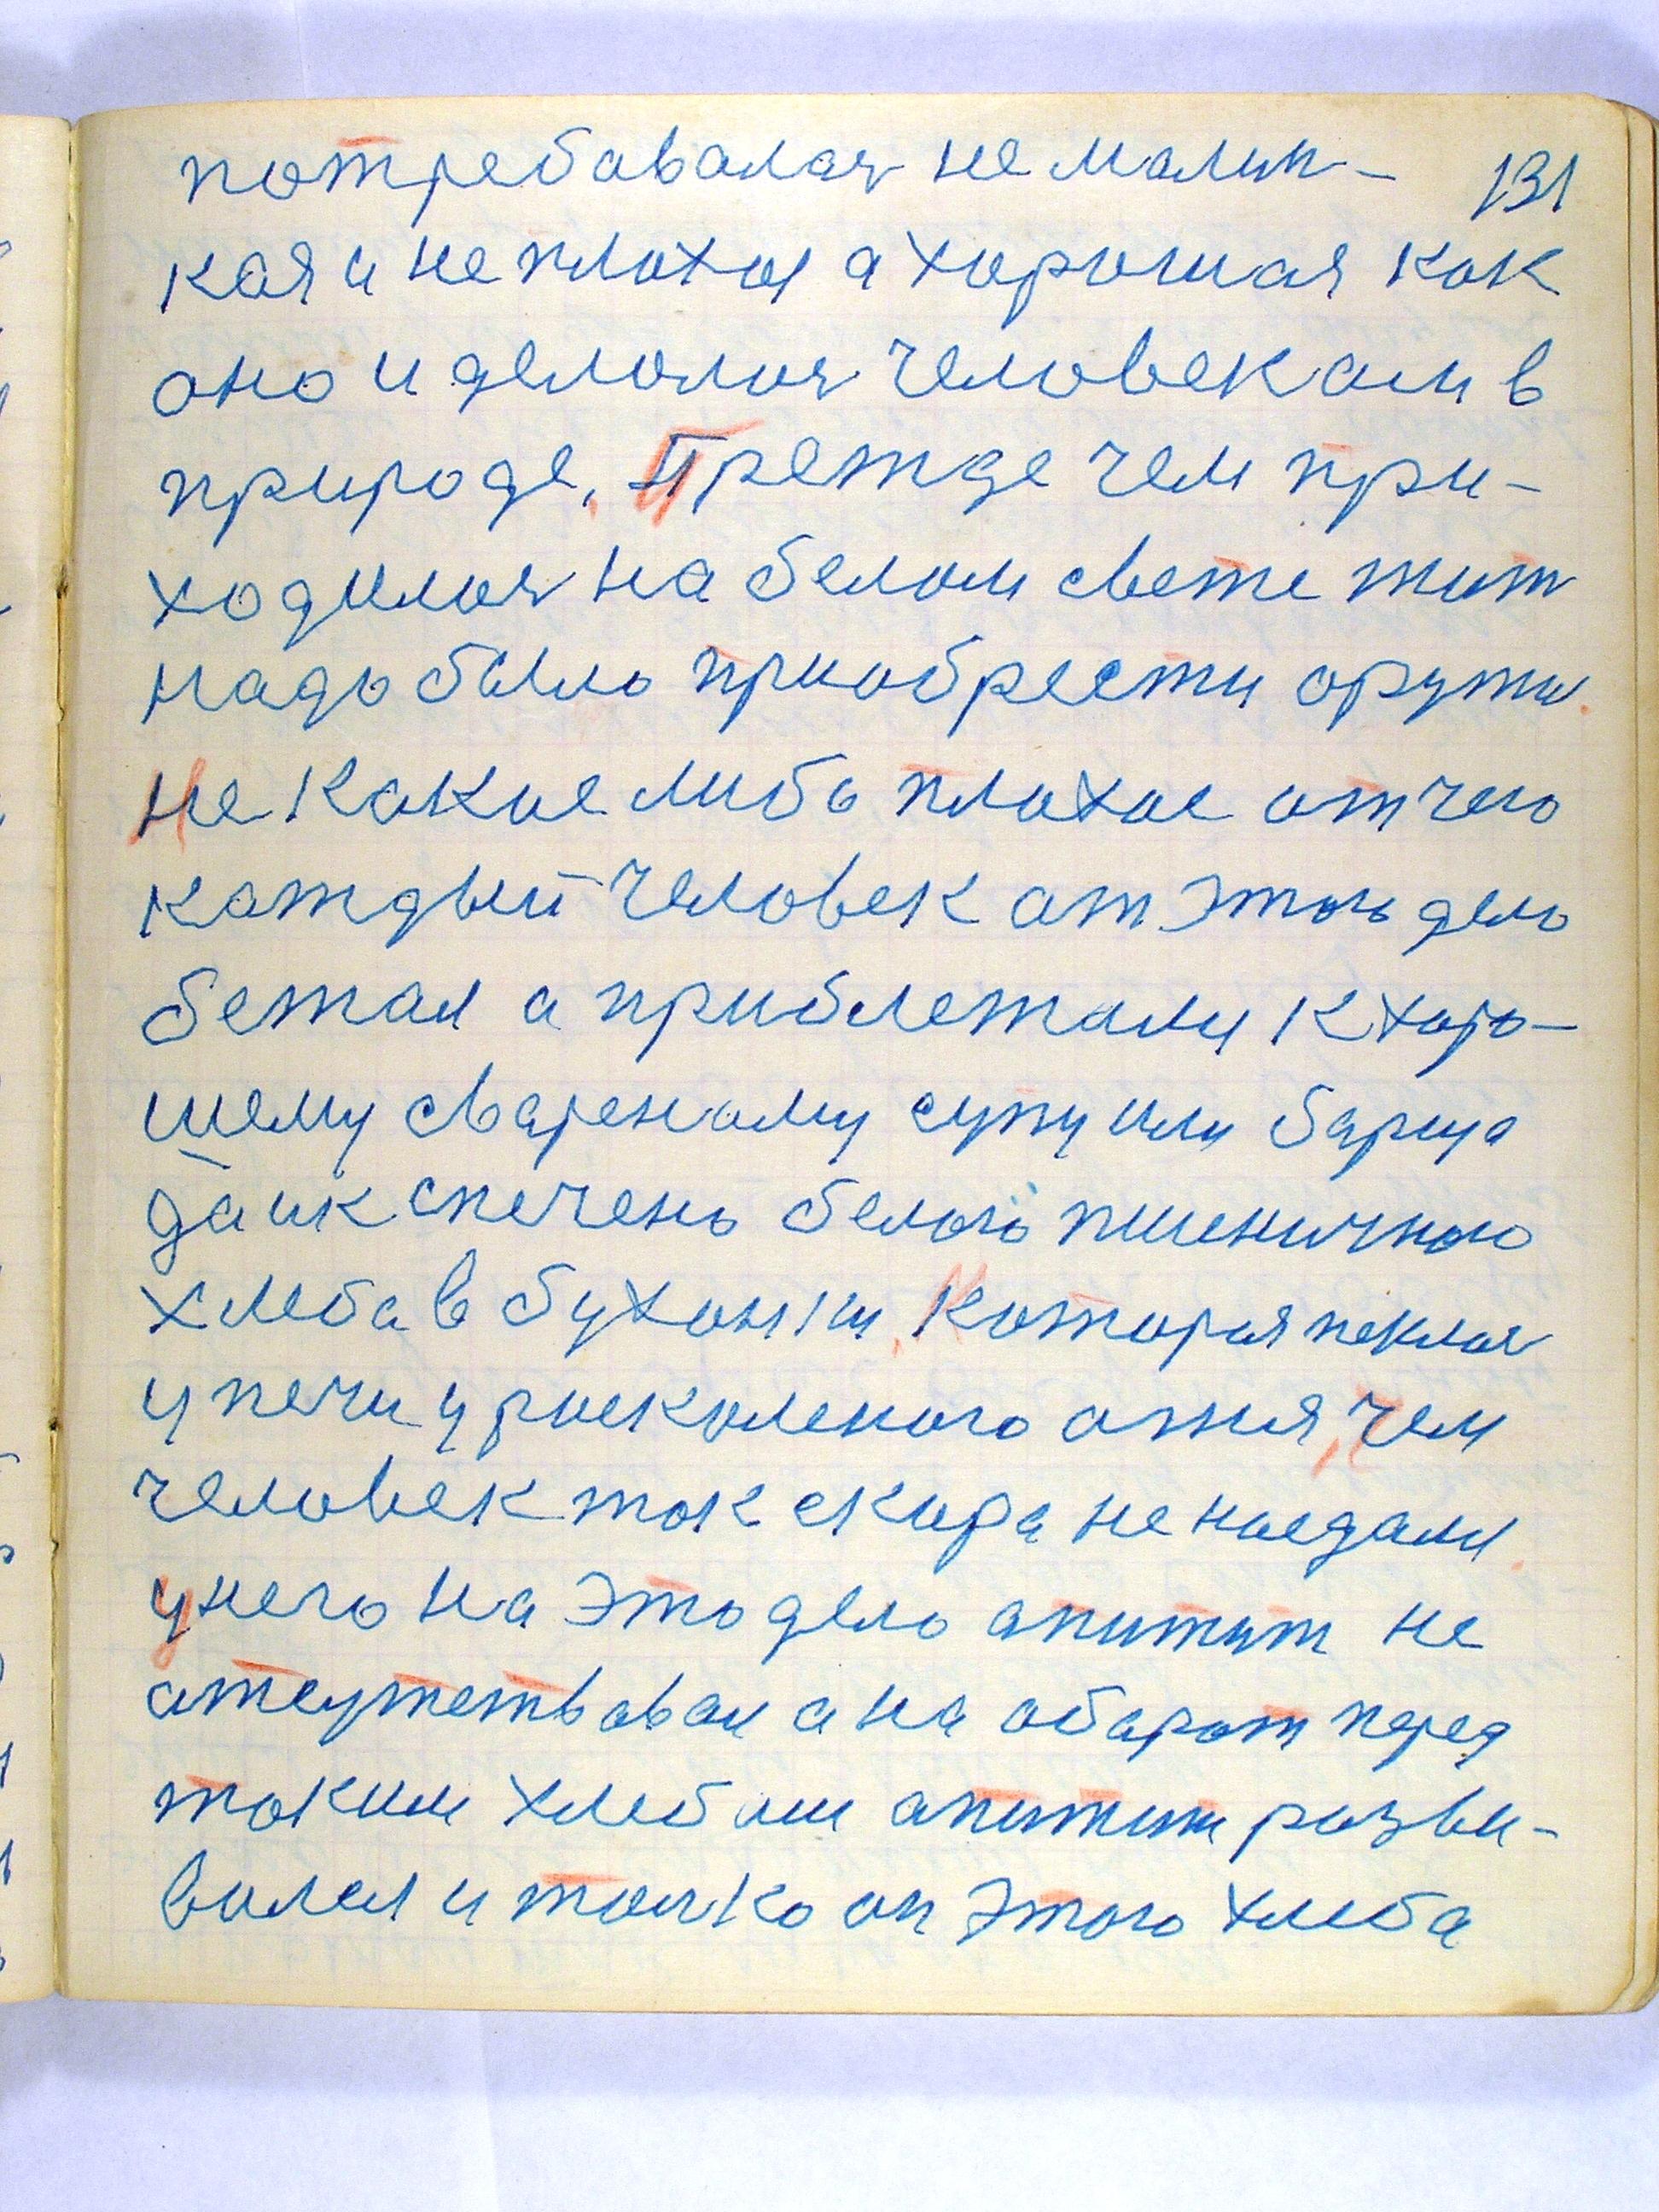 потребавалася не малин- 131
кая и не плохая а хорошая как
оно и делолося человеком в
природе, Прежде чем при-
ходилося на белом свете жит
надо было приобрести оружи.
Не какое либо плохое от чего
каждый человек от этого дело
бежал а приближали к харо-
шему свареному супу или барща
да и к спечено белого пшеничного
хлеба в буханки, Которая пеклася
у печи у роскаленого огня, чем
человек так скора не наедали.
у него на это дело апитит не
атсутствовал а на обарот перед
таким хлебом апитит розви-
вался и толко он этого хлеба